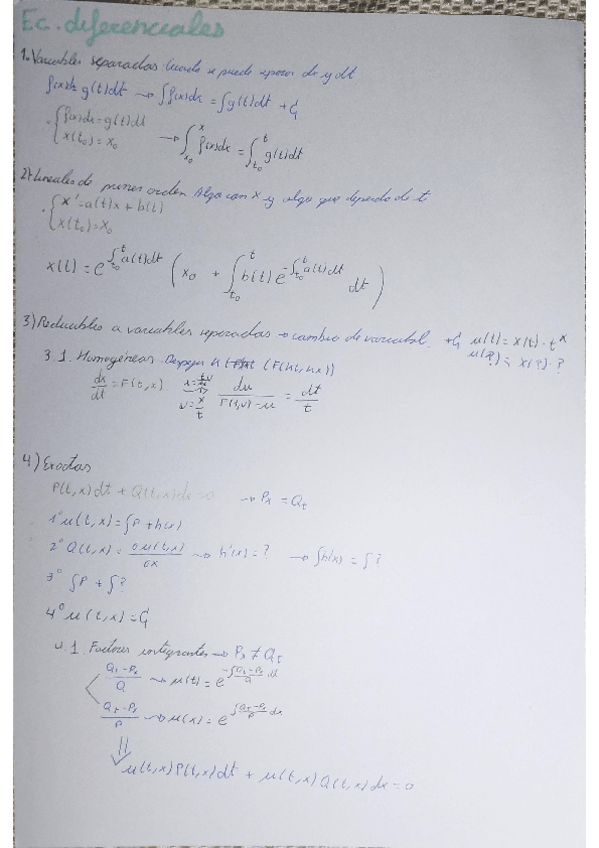 Ec. diferenciales
1. Variables separadas. Cuando se puede separar dx y dt
f(x)dx = g(t)dt → ∫f(x)dx = ∫g(t)dt + C₁
{ f(x)dx = g(t)dt
x(t₀) = x₀ → ∫_{x₀}^{x} f(x)dx = ∫_{t₀}^{t} g(t)dt
2) Lineales de primer orden. Algo con x y algo que depende de t
{ x' = a(t)x + b(t)
x(t₀) = x₀
x(t) = e^{∫_{t₀}^{t} a(t)dt} (x₀ + ∫_{t₀}^{t} b(t) e^{-∫_{t₀}^{t} a(t)dt} dt)
3) Reducibles a variables separadas → cambio de variable. +C₁ u(t) = x(t) · t^x
u(?) = x(?) · ?
3.1. Homogéneas. (F(kt, kx))
dx/dt = F(t,x) x = t·v v = x/t du/(F(1,u) - u) = dt/t
4) Exactas
P(t,x)dt + Q(t,x)dx = 0 → Pₓ = Qₜ
1º u(t,x) = ∫P + h(x)
2º Q(t,x) = ∂u(t,x)/∂x → h'(x) = ? → ∫h'(x) = ∫?
3º ∫P + ∫?
4º u(t,x) = C₁
4.1. Factores integrantes → Pₓ ≠ Qₜ
(Qₜ - Pₓ)/Q → μ(t) = e^{-∫(Qₜ - Pₓ)/Q dt}
(Qₜ - Pₓ)/P → μ(x) = e^{∫(Qₜ - Pₓ)/P dx}
μ(t,x)P(t,x)dt + μ(t,x)Q(t,x)dx = 0